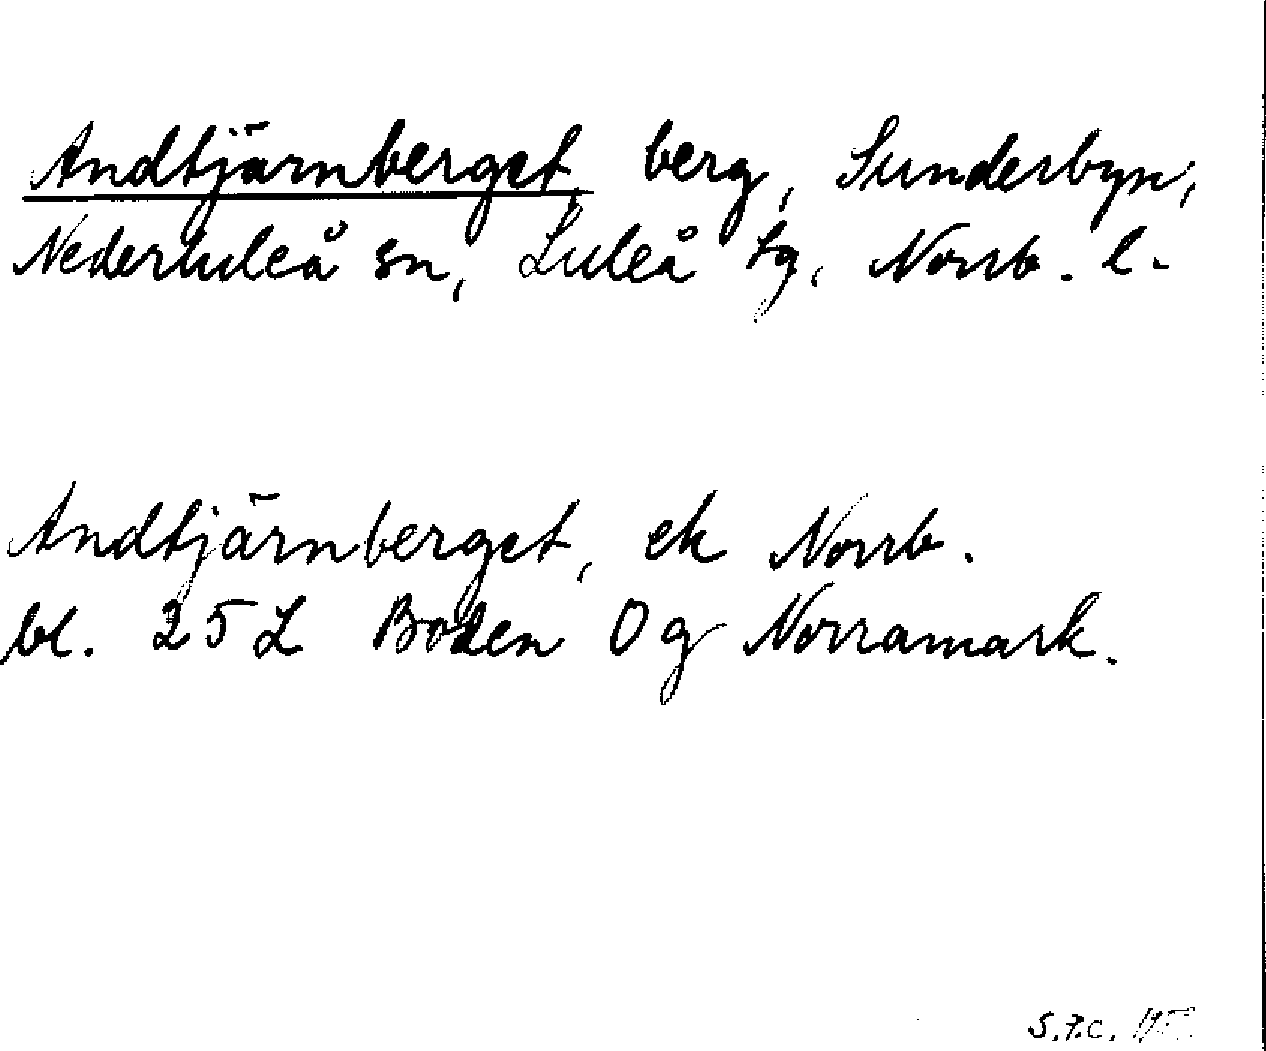 Andtjärnberget, berg, Sunderbyn,
Nederluleå sn, Luleå tg, Norrb. l.
Andtjärnberget, ek Norrb.
bl. 25 L Boden 0 g Norramark.